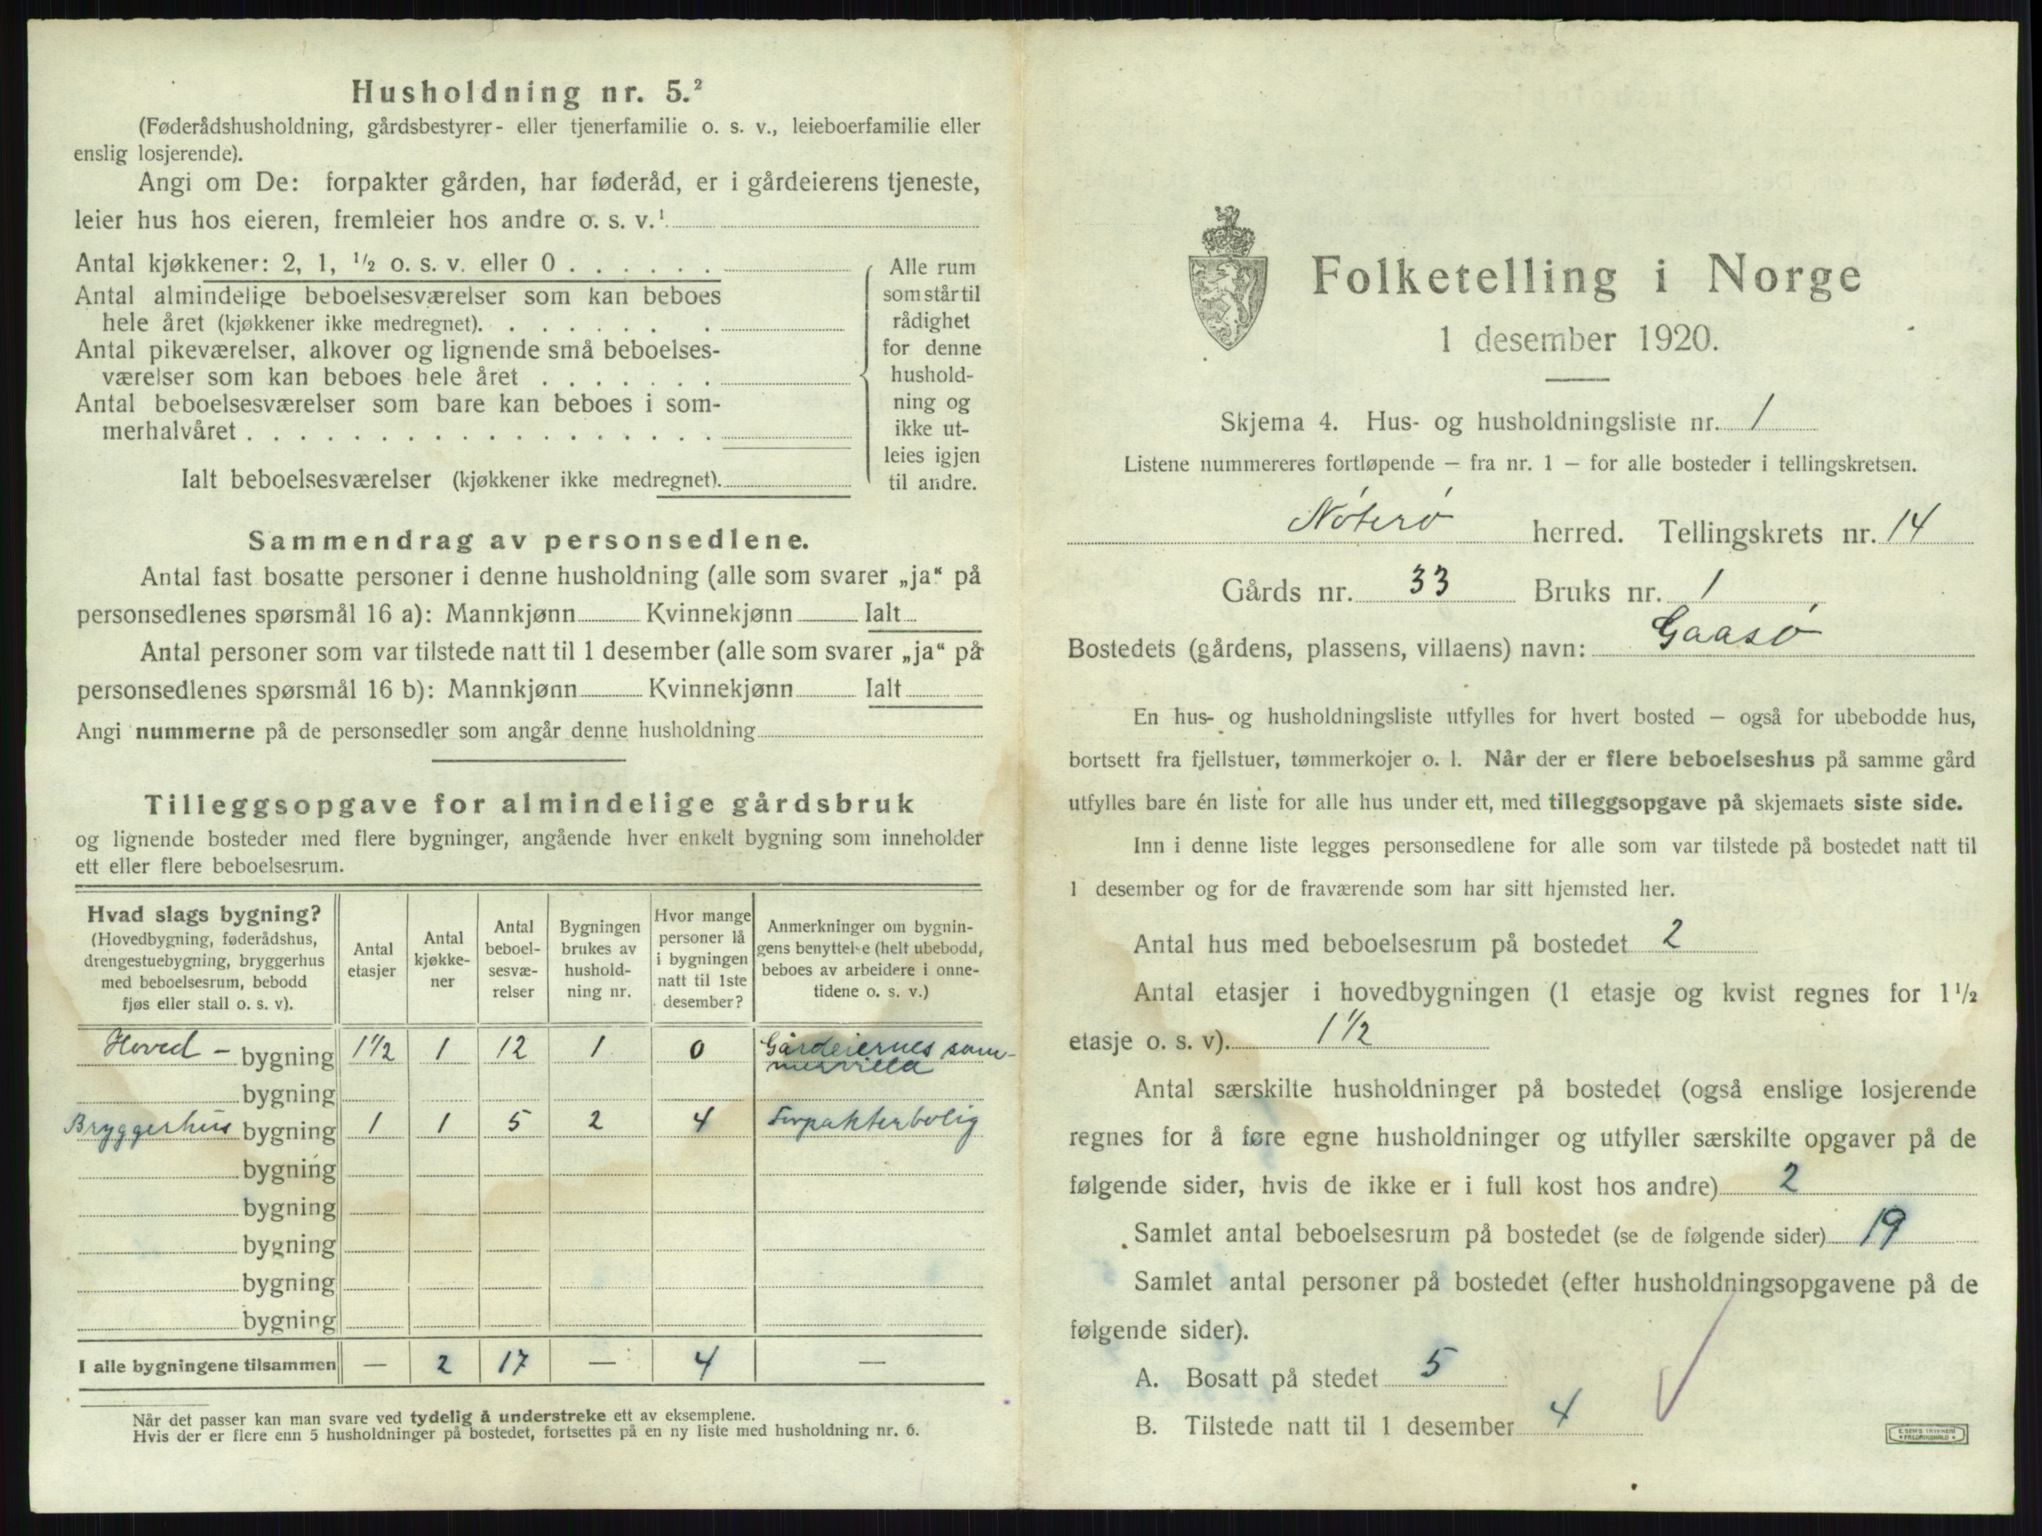 Husholdning nr. 5.²
(Føderådshusholdning, gårdsbestyrer- eller tjenerfamilie o. s. v., leieboerfamilie eller
enslig losjerende).
Angi om De: forpakter gården, har føderåd, er i gårdeierens tjeneste,
leier hus hos eieren, fremleier hos andre o. s. v.¹
Antal kjøkkener: 2, 1, ¹/₂ o. s. v. eller 0
Antal almindelige beboelsesværelser som kan beboes
hele året (kjøkkener ikke medregnet).
Antal pikeværelser, alkover og lignende små beboelses-
værelser som kan beboes hele året
Antal beboelsesværelser som bare kan beboes i som-
merhalvåret
Ialt beboelsesværelser (kjøkkener ikke medregnet).
Alle rum
som står til
rådighet
for denne
hushold-
ning og
ikke ut-
leies igjen
til andre.
Sammendrag av personsedlene.
Antal fast bosatte personer i denne husholdning (alle som svarer „ja“ på
personsedlenes spørsmål 16 a): Mannkjønn Kvinnekjønn Ialt
Antal personer som var tilstede natt til 1 desember (alle som svarer „ja“ på
personsedlenes spørsmål 16 b): Mannkjønn Kvinnekjønn Ialt
Angi nummerne på de personsedler som angår denne husholdning
Tilleggsopgave for almindelige gårdsbruk
og lignende bosteder med flere bygninger, angående hver enkelt bygning som inneholder
ett eller flere beboelsesrum.
Hvad slags bygning?
(Hovedbygning, føderådshus,
drengestuebygning, bryggerhus
med beboelsesrum, bebodd
fjøs eller stall o. s. v).
Antal
etasjer
Antal
kjøkke-
ner
Antal
beboel-
sesvæ-
relser
Bygningen
brukes av
hushold-
ning nr.
Hvor mange
personer lå
i bygningen
natt til 1ste
desember?
Anmerkninger om bygnin-
gens benyttelse (helt ubebodd,
beboes av arbeidere i onne-
tidene o. s. v.)
Hoved - bygning 1½ 1 12 1 0 Gårdeiernes som-
mervilla
bygning
Bryggerhus bygning 1 1 5 2 4 Forpakterbolig
bygning
bygning
bygning
bygning
bygning
I alle bygningene tilsammen — 2 17 — 4 —
Når det passer kan man svare ved tydelig å understreke ett av eksemplene.
Hvis der er flere enn 5 husholdninger på bostedet, fortsettes på en ny liste med husholdning nr. 6.
Folketelling i Norge
1 desember 1920.
Skjema 4. Hus- og husholdningsliste nr. 1
Listene nummereres fortløpende – fra nr. 1 – for alle bosteder i tellingskretsen.
Nøterø herred. Tellingskrets nr. 14
Gårds nr. 33 Bruks nr. 1
Bostedets (gårdens, plassens, villaens) navn: Gaasø
En hus- og husholdningsliste utfylles for hvert bosted – også for ubebodde hus,
bortsett fra fjellstuer, tømmerkojer o. l. Når der er flere beboelseshus på samme gård
utfylles bare én liste for alle hus under ett, med tilleggsopgave på skjemaets siste side.
Inn i denne liste legges personsedlene for alle som var tilstede på bostedet natt til
1 desember og for de fraværende som har sitt hjemsted her.
Antal hus med beboelsesrum på bostedet 2
Antal etasjer i hovedbygningen (1 etasje og kvist regnes for 1¹/₂
etasje o. s. v). 1½
Antal særskilte husholdninger på bostedet (også enslige losjerende
regnes for å føre egne husholdninger og utfyller særskilte opgaver på de
følgende sider, hvis de ikke er i full kost hos andre) 2
Samlet antal beboelsesrum på bostedet (se de følgende sider) 19
Samlet antal personer på bostedet (efter husholdningsopgavene på de
følgende sider).
A. Bosatt på stedet 5
B. Tilstede natt til 1 desember 4